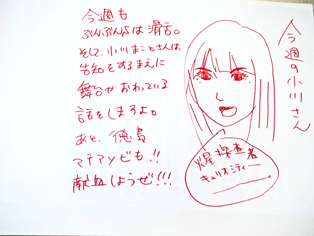 今週の小川さん
今週も
ぷんぷんぷは滑舌。
そして、小川まことさんは
告知をするまえに
舞台がおわっている
話をしますよ。
あと、徳島
マチアソビも!!
献血しようぜ!!!
火星探査者
キュリオシティー